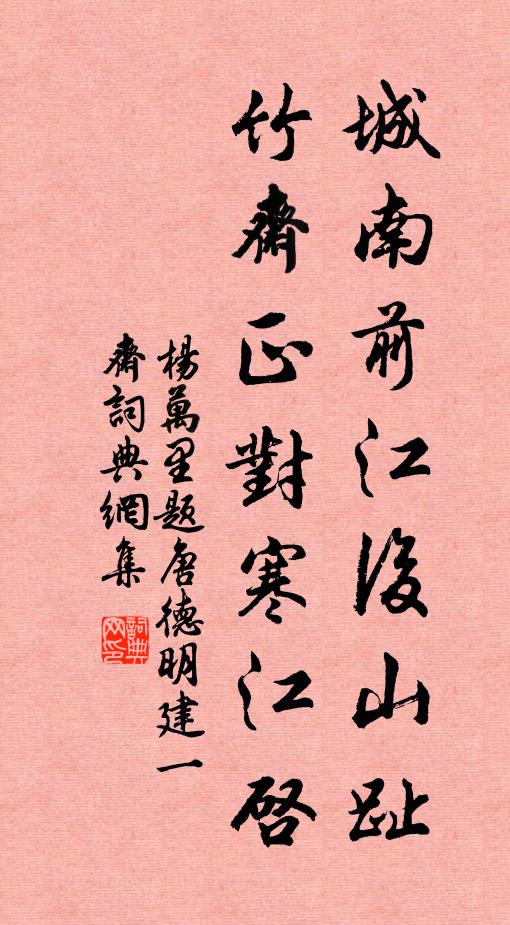 城南前江後山趾
竹齋正對寒江啓
楊萬里題唐德明建一
齋詞典網集
詞典网印